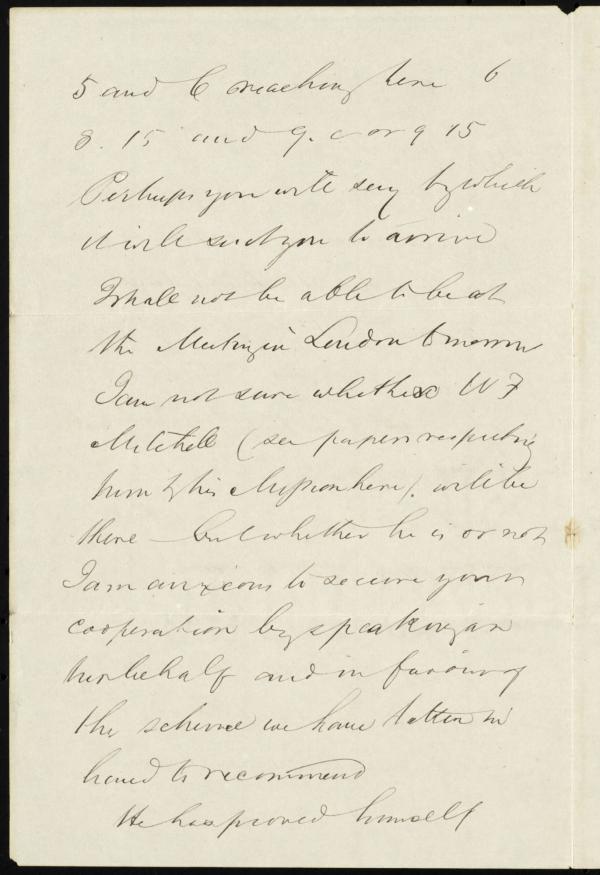 5 and 6 reaching here 6
8.15 and 9.0 or 9 15
Perhaps you will say by which
it will suit you to arrive
I shall not be able to be at
the Meeting in London tomorrow
I am not sure whether W F
Mitchell (see papers respecting
him & his Mission here). will be
there - but whether he is or not
I am anxious to secure your
cooperation by speaking on
his behalf and in favour of
the scheme we have taken in
hand to recommend
He has proved himself